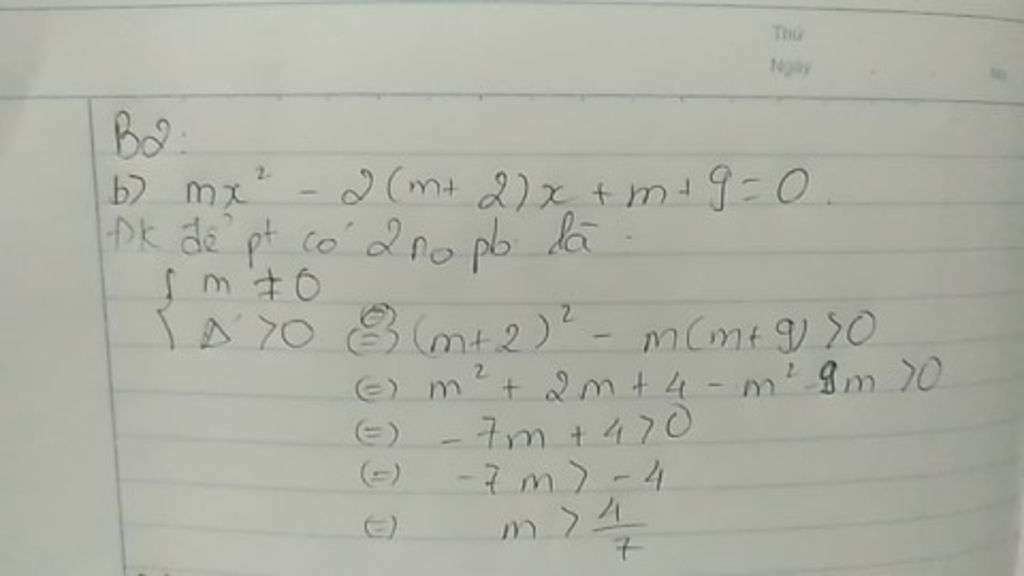 Thứ
Ngày
No
B2:
b) mx² - 2(m+2)x + m + 9 = 0.
ĐK để pt có 2 no pb là.
{ m ≠ 0
{ Δ' > 0 (=) (m+2)² - m(m+9) > 0
(=) m² + 2m + 4 - m² - 9m > 0
(=) -7m + 4 > 0
(=) -7m > -4
(=) m > 4/7